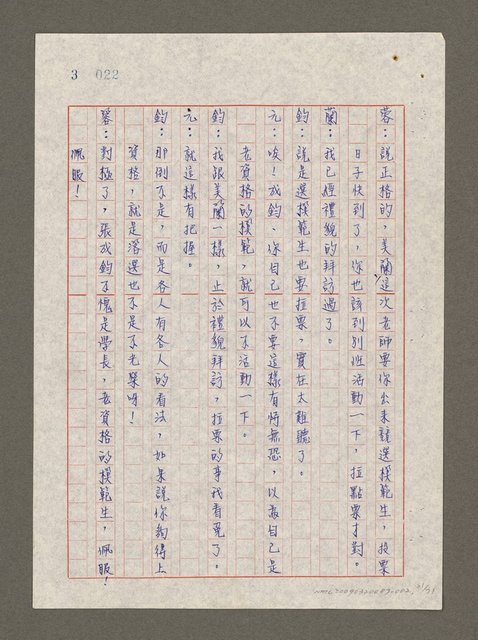 3 022
蓉：說正格的，美蘭，這次老師要你出來競選模範生，投票
日子快到了，你也該到別班活動一下，拉點票才對。
蘭：我已經禮貌的拜訪過了。
鈞：說是選模範生也要拉票，實在太難聽了。
元：唉！成鈞、你自己也不要這樣有恃無恐，以為自己是
老資格的模範，就可以不活動一下。
鈞：我跟美蘭一樣，止於禮貌拜訪，拉票的事我看免了。
元：就這樣有把握。
鈞：那倒不是，而是各人有各人的看法，如果說你夠得上
資格，就是落選也不是不光榮呀！
蓉：對極了，張成鈞不愧是學長，老資格的模範生，佩服！
佩服！
NMTL20090320087-002, 31/71